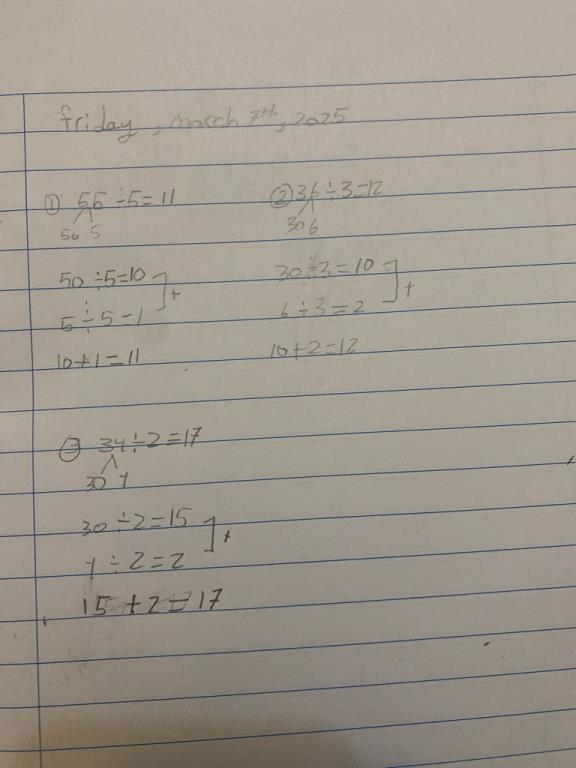 friday, march 7th, 2025
① 55 ÷ 5 = 11
50 5
50 ÷ 5 = 10
5 ÷ 5 = 1
+
10 + 1 = 11
② 36 ÷ 3 = 12
30 6
30 ÷ 3 = 10
6 ÷ 3 = 2
+
10 + 2 = 12
③ 34 ÷ 2 = 17
30 4
30 ÷ 2 = 15
4 ÷ 2 = 2
+
15 + 2 = 17